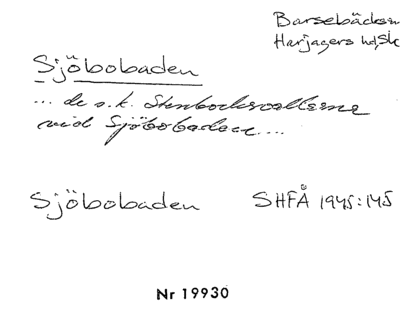 Barsebäcks sn
Harjagers hd, Sk
Sjöbobaden
... de s.k. Stenbocksvallarna
vid Sjöbobaden....
Sjöbobaden SHFÅ 1945:145
Nr 19930